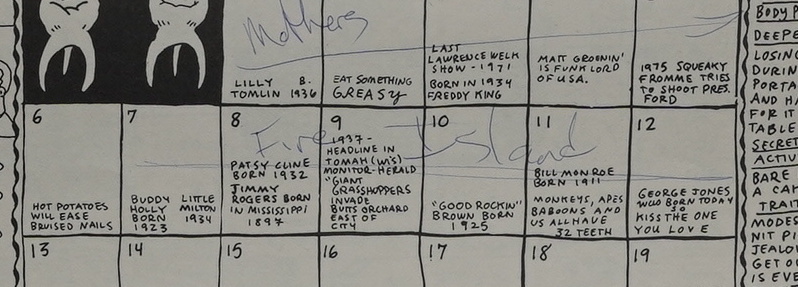 Mothers
LILLY B.
TOMLIN 1936
EAT SOMETHING
GREASY
LAST
LAWRENCE WELK
SHOW - 1971
BORN IN 1934
FREDDY KING
MATT GROENIN'
IS FUNK LORD
OF USA.
1975 SQUEAKY
FROMME TRIES
TO SHOOT PRES.
FORD
Fire Island
6
HOT POTATOES
WILL EASE
BRUISED NAILS
7
BUDDY LITTLE
HOLLY MILTON
BORN 1934
1923
8
PATSY CLINE
BORN 1932
JIMMY
ROGERS BORN
IN MISSISSIPPI
1897
9
1937-
HEADLINE IN
TOMAH (WIS)
MONITOR-HERALD
"GIANT
GRASSHOPPERS
INVADE
BUTTS ORCHARD
EAST OF
CITY
10
"GOOD ROCKIN"
BROWN BORN
1925
11
BILL MONROE
BORN 1911
MONKEYS, APES
BABOONS AND
US ALL HAVE
32 TEETH
12
GEORGE JONES
WUZ BORN TODAY
SO
KISS THE ONE
YOU LOVE
13
14
15
16
17
18
19
BODY P
DEEPE
LOSIN
DURIN
PORTA
AND HA
FOR IT
TABLE
SECRET
ACTIV
BARE
A CA
TRAIT
MODES
NIT PI
JEALO
GET O
IS EVE